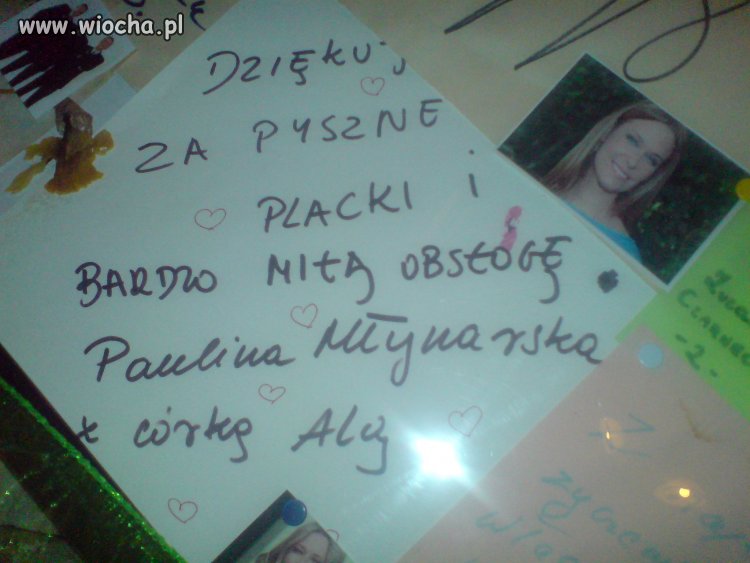 www.wiocha.pl
DZIĘKUJ
ZA PYSZNE
PLACKI i
BARDZO MIŁĄ OBSŁOGĘ
Paulina Młynarska
z córką Alą
-2-
życzen